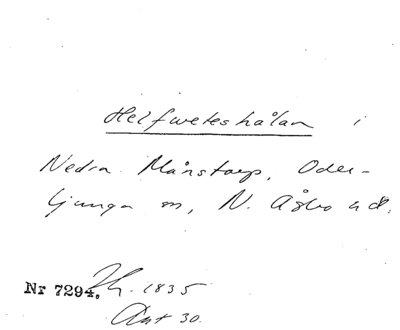 Helfweteshålan i
Nedra Månstorp, Oder-
ljunga sn, N. Åsbo hd.
Nr 7294. 1835
Ant 30.